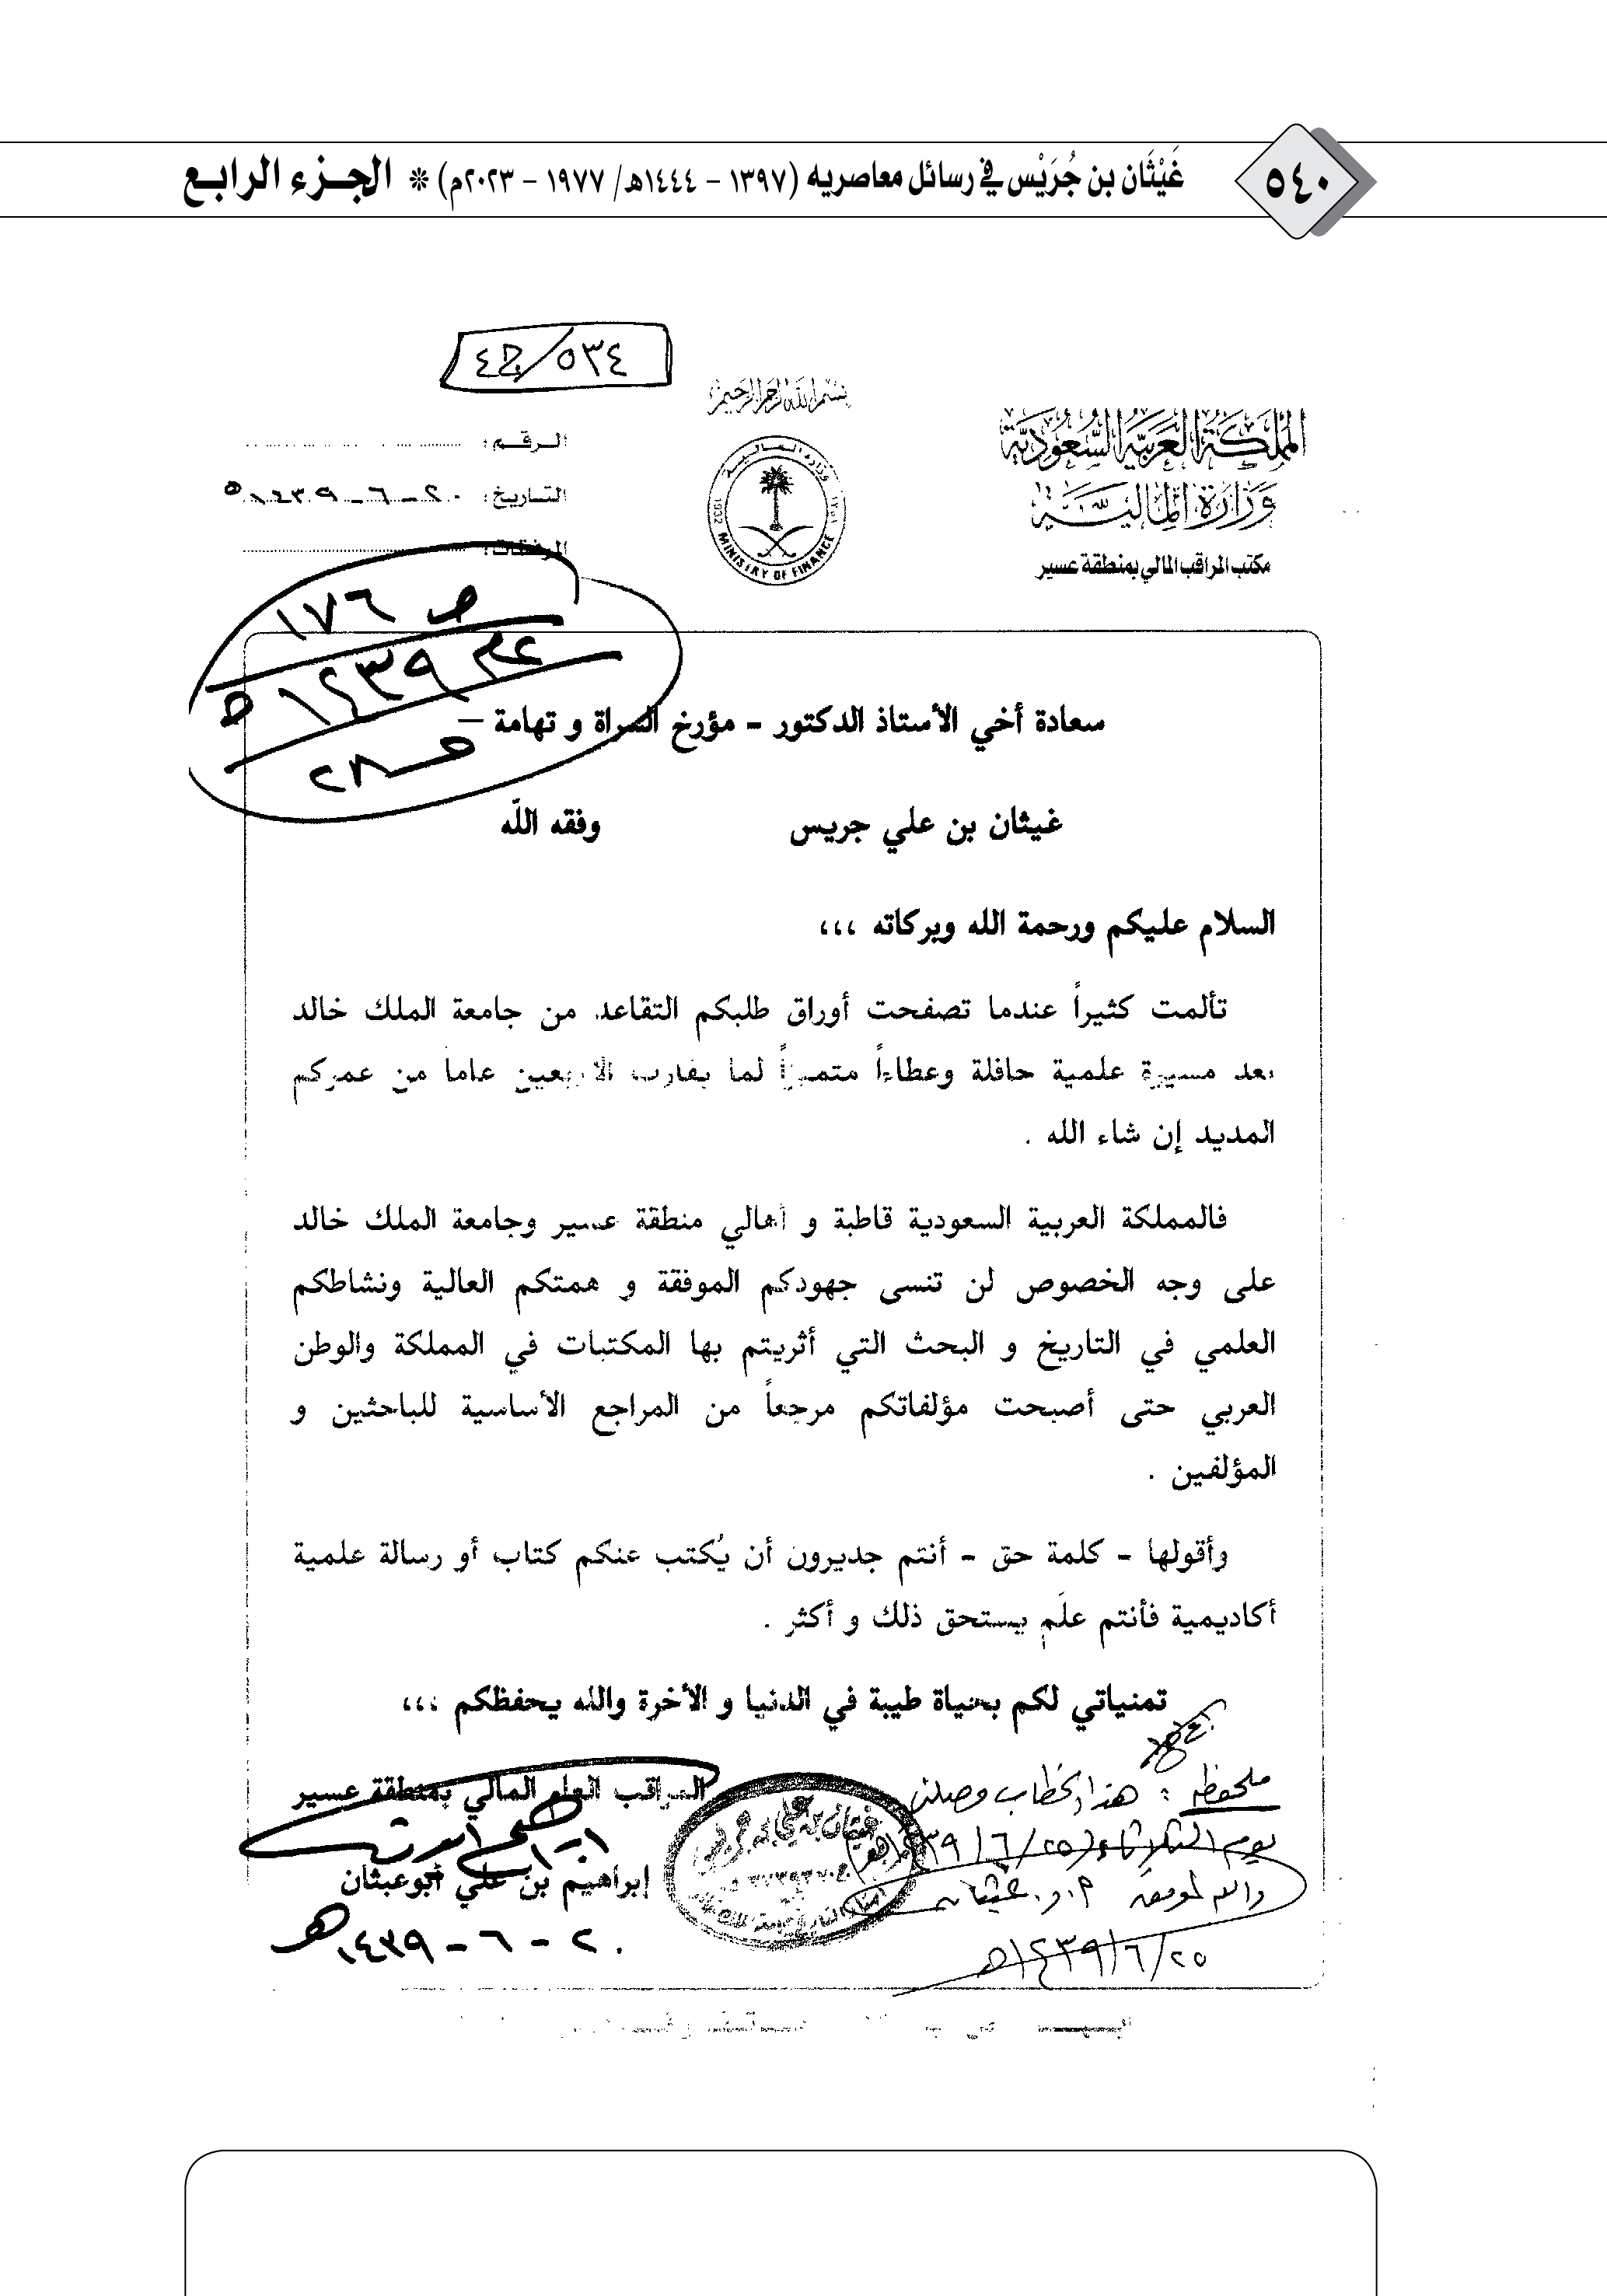 ٥٤٠
غَيْثَان بن جُرَيْس في رسائل معاصريه (١٣٩٧ – ١٤٤٤هـ/ ١٩٧٧ – ٢٠٢٣م) * الجـزء الرابـع
٥٣٤/ج٤
بسم الله الرحمن الرحيم
المملكة العربية السعودية
وزارة المالية
مكتب المراقب المالي بمنطقة عسير
وزارة المالية
1932
MINISTRY OF FINANCE
الـرقـم:
التـاريخ: ٢٠-٦-١٤٣٩هـ
المرفقات:
ص ١٧٦
عام ١٤٣٩هـ
سعادة أخي الأستاذ الدكتور – مؤرخ السراة و تهامة –
غيثان بن علي جريس وفقه الله
السلام عليكم ورحمة الله وبركاته ،،،
تألمت كثيراً عندما تصفحت أوراق طلبكم التقاعد من جامعة الملك خالد
بعد مسيرة علمية حافلة وعطاءاً متميزاً لما يقارب الأربعين عاماً من عمركم
المديد إن شاء الله .
فالمملكة العربية السعودية قاطبة و أهالي منطقة عسير وجامعة الملك خالد
على وجه الخصوص لن تنسى جهودكم الموفقة و همتكم العالية ونشاطكم
العلمي في التاريخ و البحث التي أثريتم بها المكتبات في المملكة والوطن
العربي حتى أصبحت مؤلفاتكم مرجعاً من المراجع الأساسية للباحثين و
المؤلفين .
وأقولها – كلمة حق – أنتم جديرون أن يُكتب عنكم كتاب أو رسالة علمية
أكاديمية فأنتم علَم يستحق ذلك و أكثر .
تمنياتي لكم بحياة طيبة في الدنيا و الأخرة والله يحفظكم ،،،
المراقب العام المالي بمنطقة عسير
إبراهيم بن علي أبوعبثان
٢٠-٦-١٤٣٩هـ
ملحوظة : هذا الخطاب وصلني
يوم الثلاثاء (٢٥/٦/١٤٣٩هـ)
والله الموفق أ.د. غيثان
٢٥/٦/١٤٣٩هـ